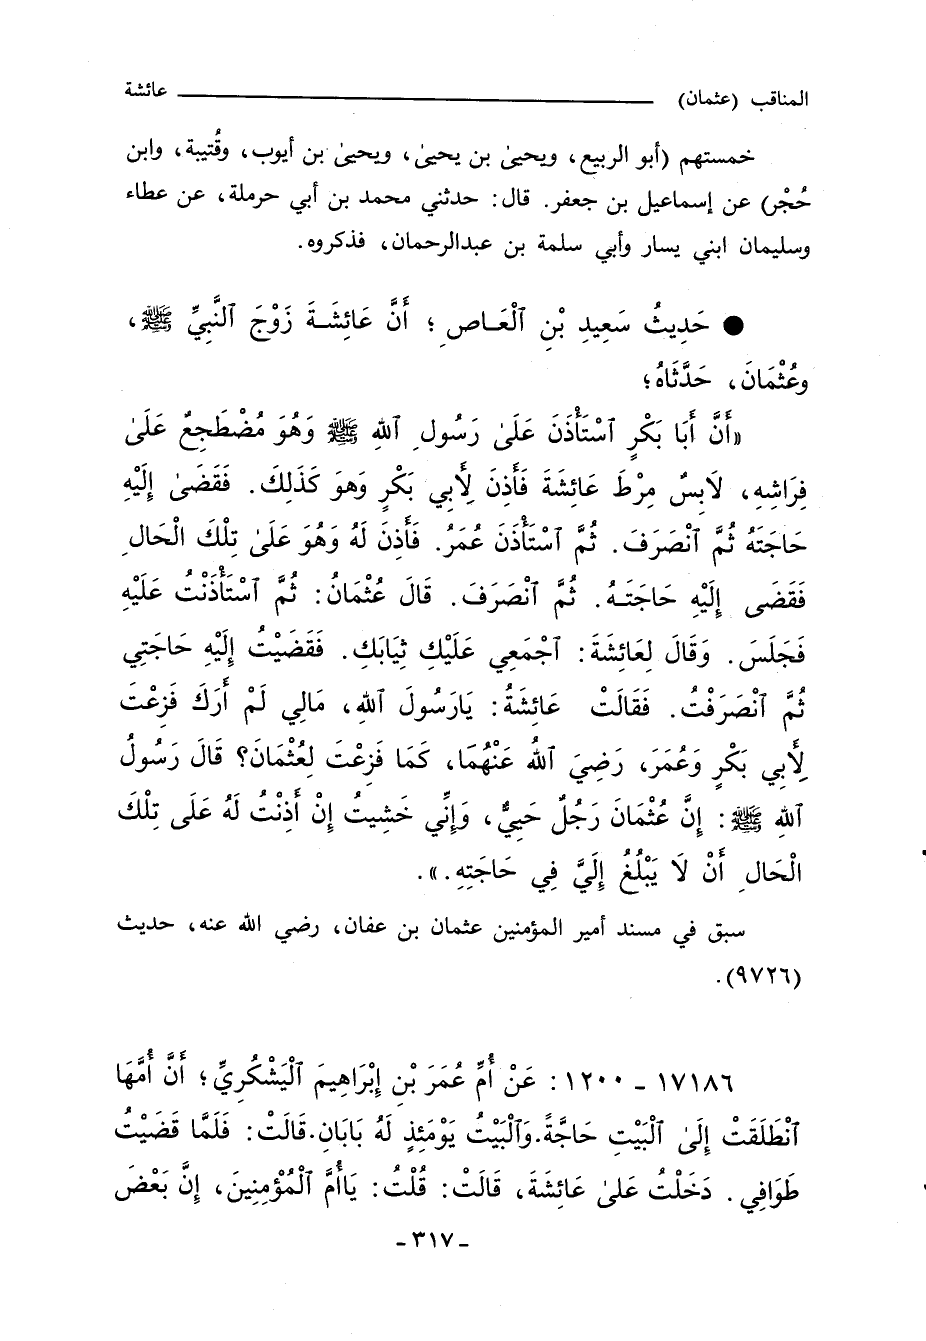 المناقب (عثمان) ــــــــــــــــــــ عائشة
خمستهم (أبو الربيع، ويحيىٰ بن يحيىٰ، ويحيىٰ بن أيوب، وقُتيبة، وابن
حُجْر) عن إسماعيل بن جعفر. قال: حدثني محمد بن أبي حرملة، عن عطاء
وسليمان ابني يسار وأبي سلمة بن عبدالرحمان، فذكروه.
● حَدِيثُ سَعِيدِ بْنِ ٱلْعَـاصِ؛ أَنَّ عَائِشَـةَ زَوْجَ ٱلنَّبِيِّ ﷺ،
وعُثْمَانَ، حَدَّثَاهُ؛
«أَنَّ أَبَا بَكْرٍ ٱسْتَأْذَنَ عَلَىٰ رَسُولِ ٱللهِ ﷺ وَهُوَ مُضْطَجِعٌ عَلَىٰ
فِرَاشِهِ، لَابِسٌ مِرْطَ عَائِشَةَ فَأَذِنَ لِأَبِي بَكْرٍ وَهوَ كَذَلِكَ. فَقَضَىٰ إِلَيْهِ
حَاجَتَهُ ثُمَّ ٱنْصَرَفَ. ثُمَّ ٱسْتَأْذَنَ عُمَرُ. فَأَذِنَ لَهُ وَهُوَ عَلَىٰ تِلْكَ الْحَالِ
فَقَضَى إِلَيْهِ حَاجَتَـهُ. ثُمَّ ٱنْصَرَفَ. قَالَ عُثْمَانُ: ثُمَّ ٱسْتَأْذَنْتُ عَلَيْهِ
فَجَلَسَ. وَقَالَ لِعَائِشَةَ: ٱجْمَعِي عَلَيْكِ ثِيَابَكِ. فَقَضَيْتُ إِلَيْهِ حَاجَتِي
ثُمَّ ٱنْصَرَفْتُ. فَقَالَتْ عَائِشَةُ: يَارَسُولَ ٱللهِ، مَالِي لَمْ أَرَكَ فَزِعْتَ
لِأَبِي بَكْرٍ وَعُمَرَ، رَضِيَ ٱللهُ عَنْهُمَا، كَمَا فَزِعْتَ لِعُثْمَانَ؟ قَالَ رَسُولُ
ٱللهِ ﷺ: إِنَّ عُثْمَانَ رَجُلٌ حَيِيٌّ، وَإِنِّي خَشِيتُ إِنْ أَذِنْتُ لَهُ عَلَى تِلْكَ
الْحَالِ أَنْ لَا يَبْلُغُ إِلَيَّ فِي حَاجَتِهِ.».
سبق في مسند أمير المؤمنين عثمان بن عفان، رضي الله عنه، حديث
(٩٧٢٦).
١٧١٨٦ - ١٢٠٠: عَنْ أُمِّ عُمَرَ بْنِ إِبْرَاهِيمَ ٱلْيَشْكُرِيِّ؛ أَنَّ أُمَّهَا
ٱنْطَلَقَتْ إِلَىٰ ٱلْبَيْتِ حَاجَّةً. وَٱلْبَيْتُ يَوْمَئِذٍ لَهُ بَابَانِ. قَالَتْ: فَلَمَّا قَضَيْتُ
طَوَافِي. دَخَلْتُ عَلىٰ عَائِشَةَ، قَالَتْ: قُلْتُ: يَاأُمَّ ٱلْمُؤْمِنِينَ، إِنَّ بَعْضَ
- ٣١٧ -